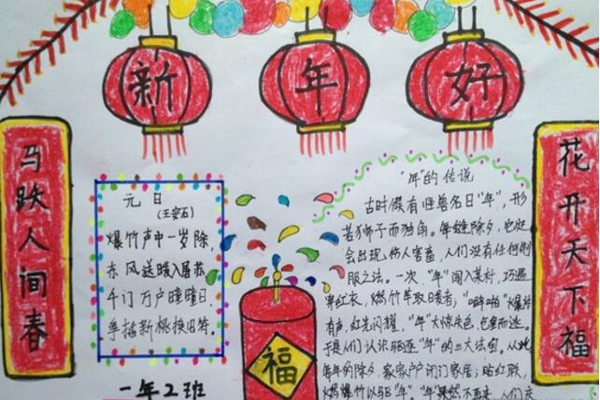 新 年 好
马跃人间春
花开天下福
元日
(王安石)
爆竹声中一岁除,
东风送暖入屠苏
千门万户曈曈日
争插新桃换旧符.
福
一年2班
"年"的传说
古时候有怪兽名曰"年",形
若狮子而独角。每逢除夕,
会出现,伤人害畜,人们没有任何制
服之法。一次"年"闯入某村,巧遇
穿红衣,燃竹竿取暖者;"噼啪"爆炸
有声,红光闪耀,"年"大惊失色,仓皇而逃。
于是人们认识驱逐"年"的三大法宝。从此
每年的除夕 家家户户闭门家居,贴红联,
燃爆竹以驱"年","年"果然不再来,人们